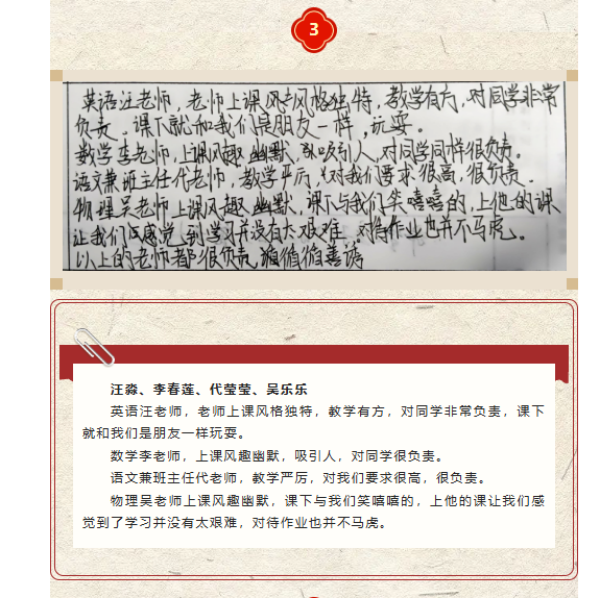 3
英语汪老师，老师上课风格独特，教学有方，对同学非常
负责。课下就和我们是朋友一样，玩耍。
数学李老师，上课风趣幽默，吸引人，对同学同样很负责。
语文兼班主任代老师，教学严厉，对我们要求很高，很负责。
物理吴老师上课风趣幽默，课下与我们笑嘻嘻的，上他的课
让我们感觉到学习并没有太艰难，对待作业也并不马虎。
以上的老师都很负责，循循善诱
汪淼、李春莲、代莹莹、吴乐乐
英语汪老师，老师上课风格独特，教学有方，对同学非常负责，课下
就和我们是朋友一样玩耍。
数学李老师，上课风趣幽默，吸引人，对同学很负责。
语文兼班主任代老师，教学严厉，对我们要求很高，很负责。
物理吴老师上课风趣幽默，课下与我们笑嘻嘻的，上他的课让我们感
觉到了学习并没有太艰难，对待作业也并不马虎。